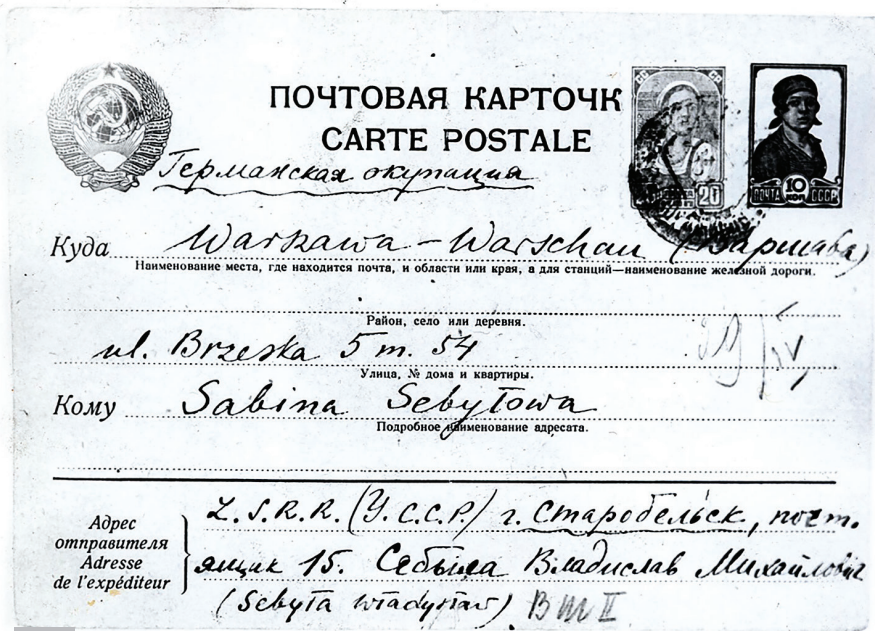 ПОЧТОВАЯ КАРТОЧК
CARTE POSTALE
20
ПОЧТА 10 КОП СССР
Германская окупация
Куда Warszawa – Warschau (Варшава)
Наименование места, где находится почта, и области или края, а для станций—наименование железной дороги.
Район, село или деревня.
ul. Brzeska 5 m. 54
Улица, № дома и квартиры.
Кому Sabina Sebyłowa
Подробное наименование адресата.
Адрес отправителя
Adresse de l'expéditeur
Z.S.R.R. (У.С.С.Р.) г. Старобельск, почт.
ящик 15. Себыла Владислав Михайлович
(Sebyła Władysław)